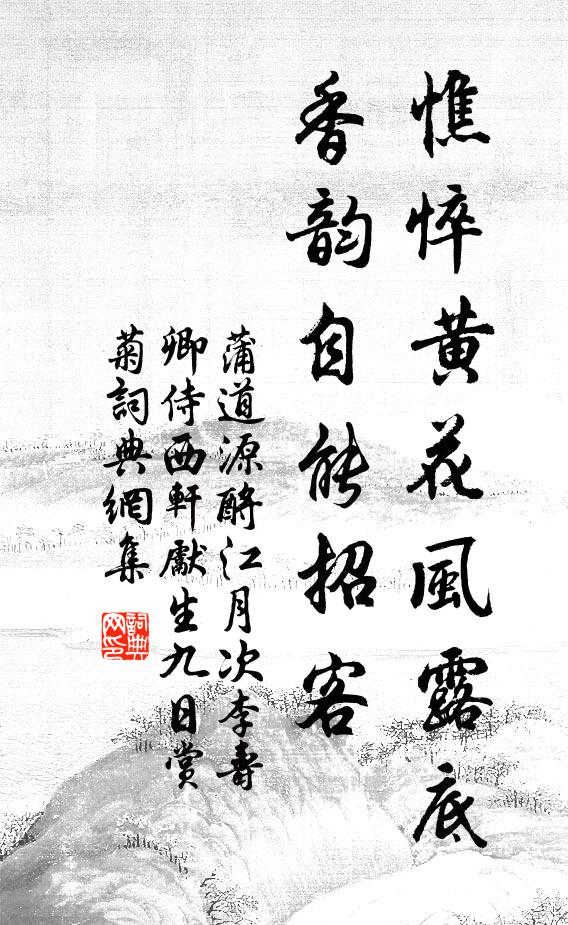 憔悴黃花風露底
香韵自能招客
蒲道源酹江月次李壽
卿侍西軒獻生九日賞
菊詞典網集
詞典网印